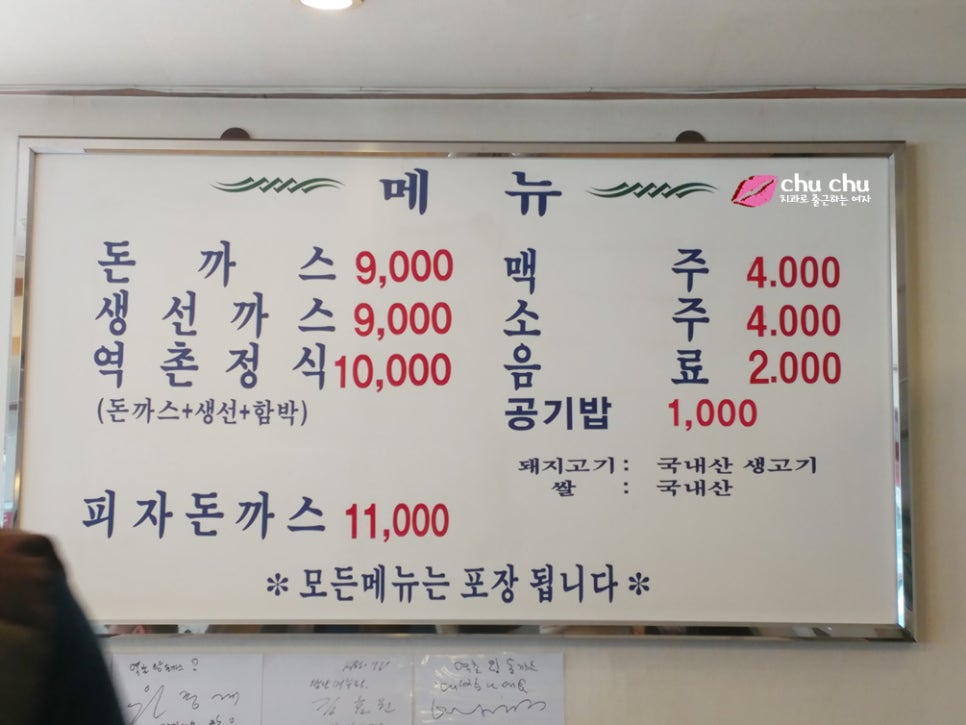 메 뉴
chu chu
치과로 출근하는 여자
돈 까 스 9,000
생 선 까 스 9,000
역 촌 정 식 10,000
(돈까스+생선+함박)
피 자 돈 까 스 11,000
맥 주 4.000
소 주 4.000
음 료 2.000
공기밥 1,000
돼지고기 : 국내산 생고기
쌀 : 국내산
* 모든메뉴는 포장 됩니다 *